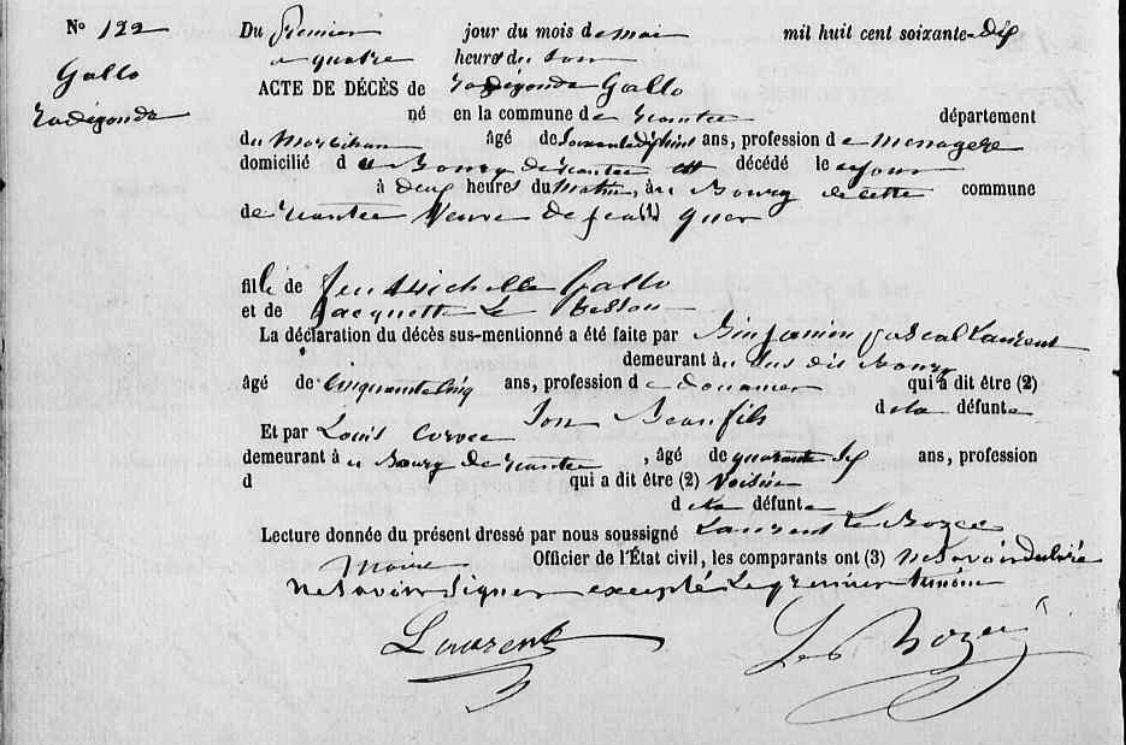 N° 122 Du premier jour du mois de mai mil huit cent soixante-dix
Gallo
à quatre heures du soir
ACTE DE DÉCÈS de radégonde Gallo
radégonde
né en la commune de département
du Morbihan âgé de ans, profession de menagere
domicilié d au Bourg de est décédé le ce jour
à deux heures du matin, au Bourg de cette commune
de veuve de feu
fille de feu Michelle Gallo
et de Jacquette Le
La déclaration du décès sus-mentionné a été faite par Binjamin pascal Laurent
demeurant à au dit Bourg
âgé de cinquante cinq ans, profession de douanier qui a dit être (2)
son Beau fils de la défunte
Et par Louis Corvec
demeurant à au Bourg de , âgé de quarante ans, profession
d qui a dit être (2) voisin
de la défunte
Lecture donnée du présent dressé par nous soussigné Laurent Le
Maire Officier de l'État civil, les comparants ont (3)
ne savoir signer excepté Le premier témoin
Laurent Le